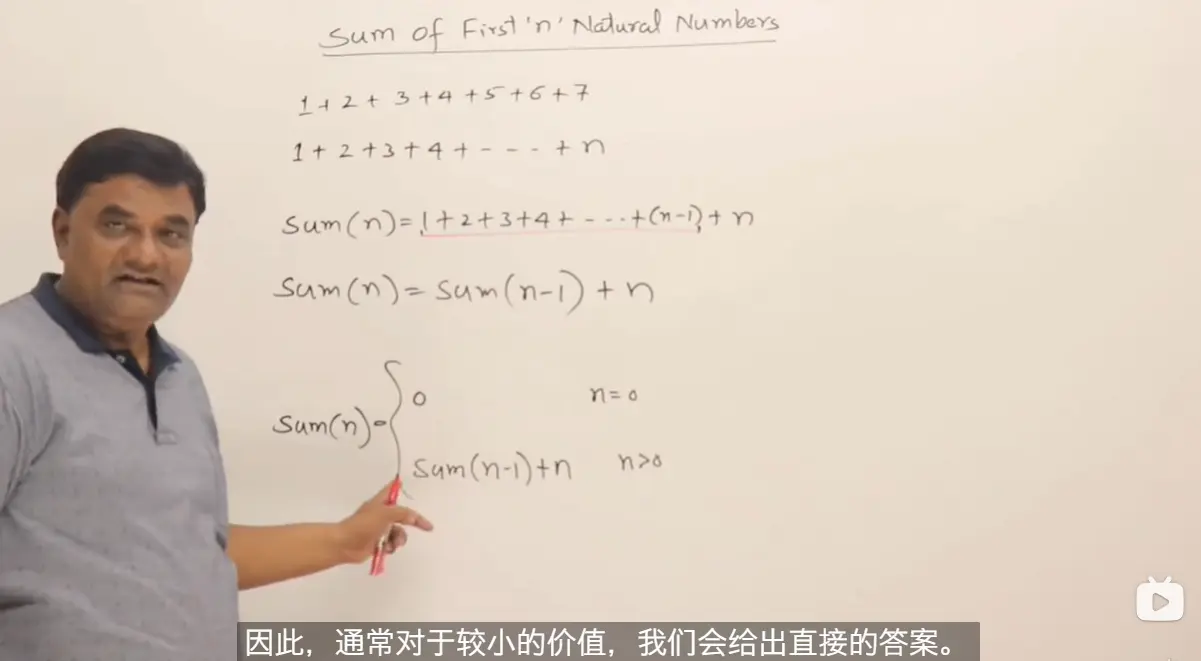 Sum of First 'n' Natural Numbers
1 + 2 + 3 + 4 + 5 + 6 + 7
1 + 2 + 3 + 4 + - - - + n
Sum(n) = 1 + 2 + 3 + 4 + - - - + (n-1) + n
Sum(n) = Sum(n-1) + n
0 n = 0
Sum(n) =
Sum(n-1) + n n>0
因此，通常对于较小的价值，我们会给出直接的答案。